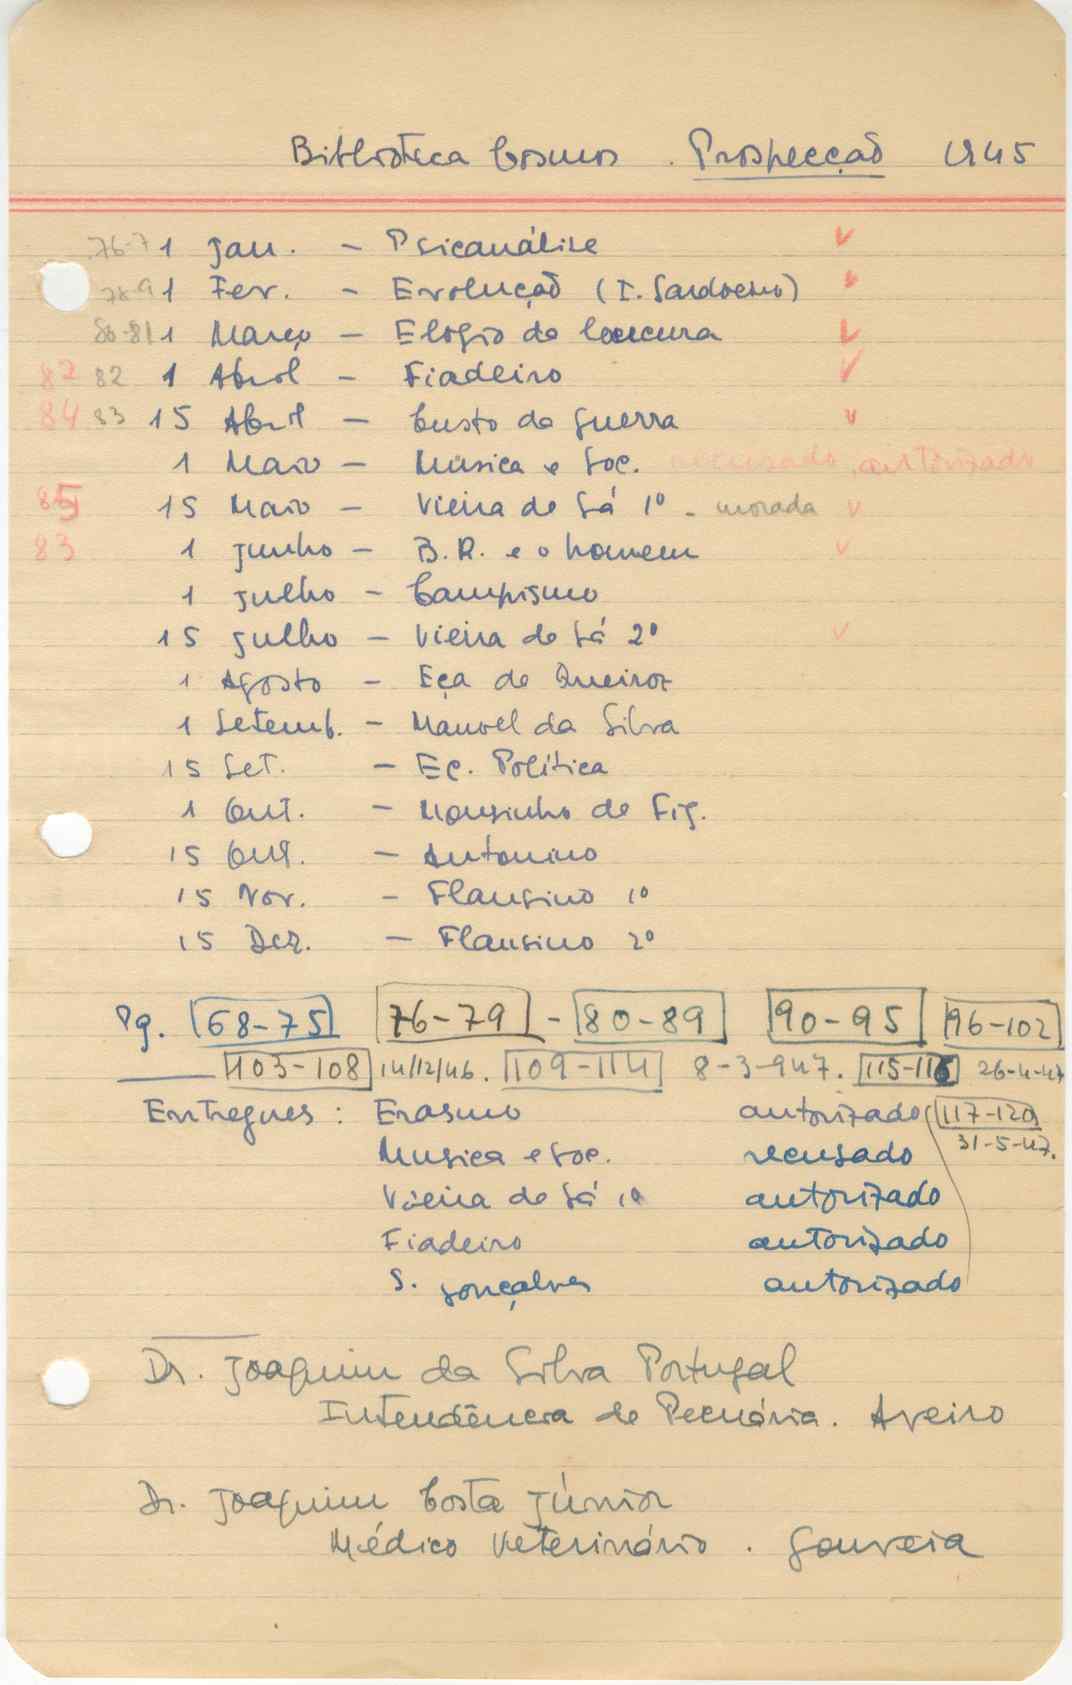 Biblioteca Cosmos. Prospecção 1945
76-7 1 Jan. - Psicanálise v
78-9 1 Fev. - Evolução (T. Sardoeiro) v
80-81 1 Março - Elogio da loucura v
82 82 1 Abril - Fiadeiro v
84 83 15 Abril - Custo da guerra v
1 Maio - Música e Soc. recusado, autorizado
85 15 Maio - Vieira de Sá 1º - morada v
83 1 Junho - B.R. e o homem v
1 Julho - Campismo
15 Julho - Vieira de Sá 2º v
1 Agosto - Eça de Queiroz
1 Setemb. - Manuel da Silva
15 Set. - Ec. Política
1 Out. - Mousinho de Fig.
15 Out. - Antonino
15 Nov. - Flausino 1º
15 Dez. - Flausino 2º
Pg. 68-75 76-79 - 80-89 90-95 96-102
103-108 14/12/46. 109-114 8-3-947. 115-116 26-4-47
Entregues: Erasmo autorizado 117-120
31-5-47.
Musica e Soc. recusado
Vieira de Sá 1º autorizado
Fiadeiro autorizado
S. Gonçalves autorizado
Dr. Joaquim da Silva Portugal
Intendência de Pecuária. Aveiro
Dr. Joaquim Costa Júnior
Médico Veterinário. Gouveia